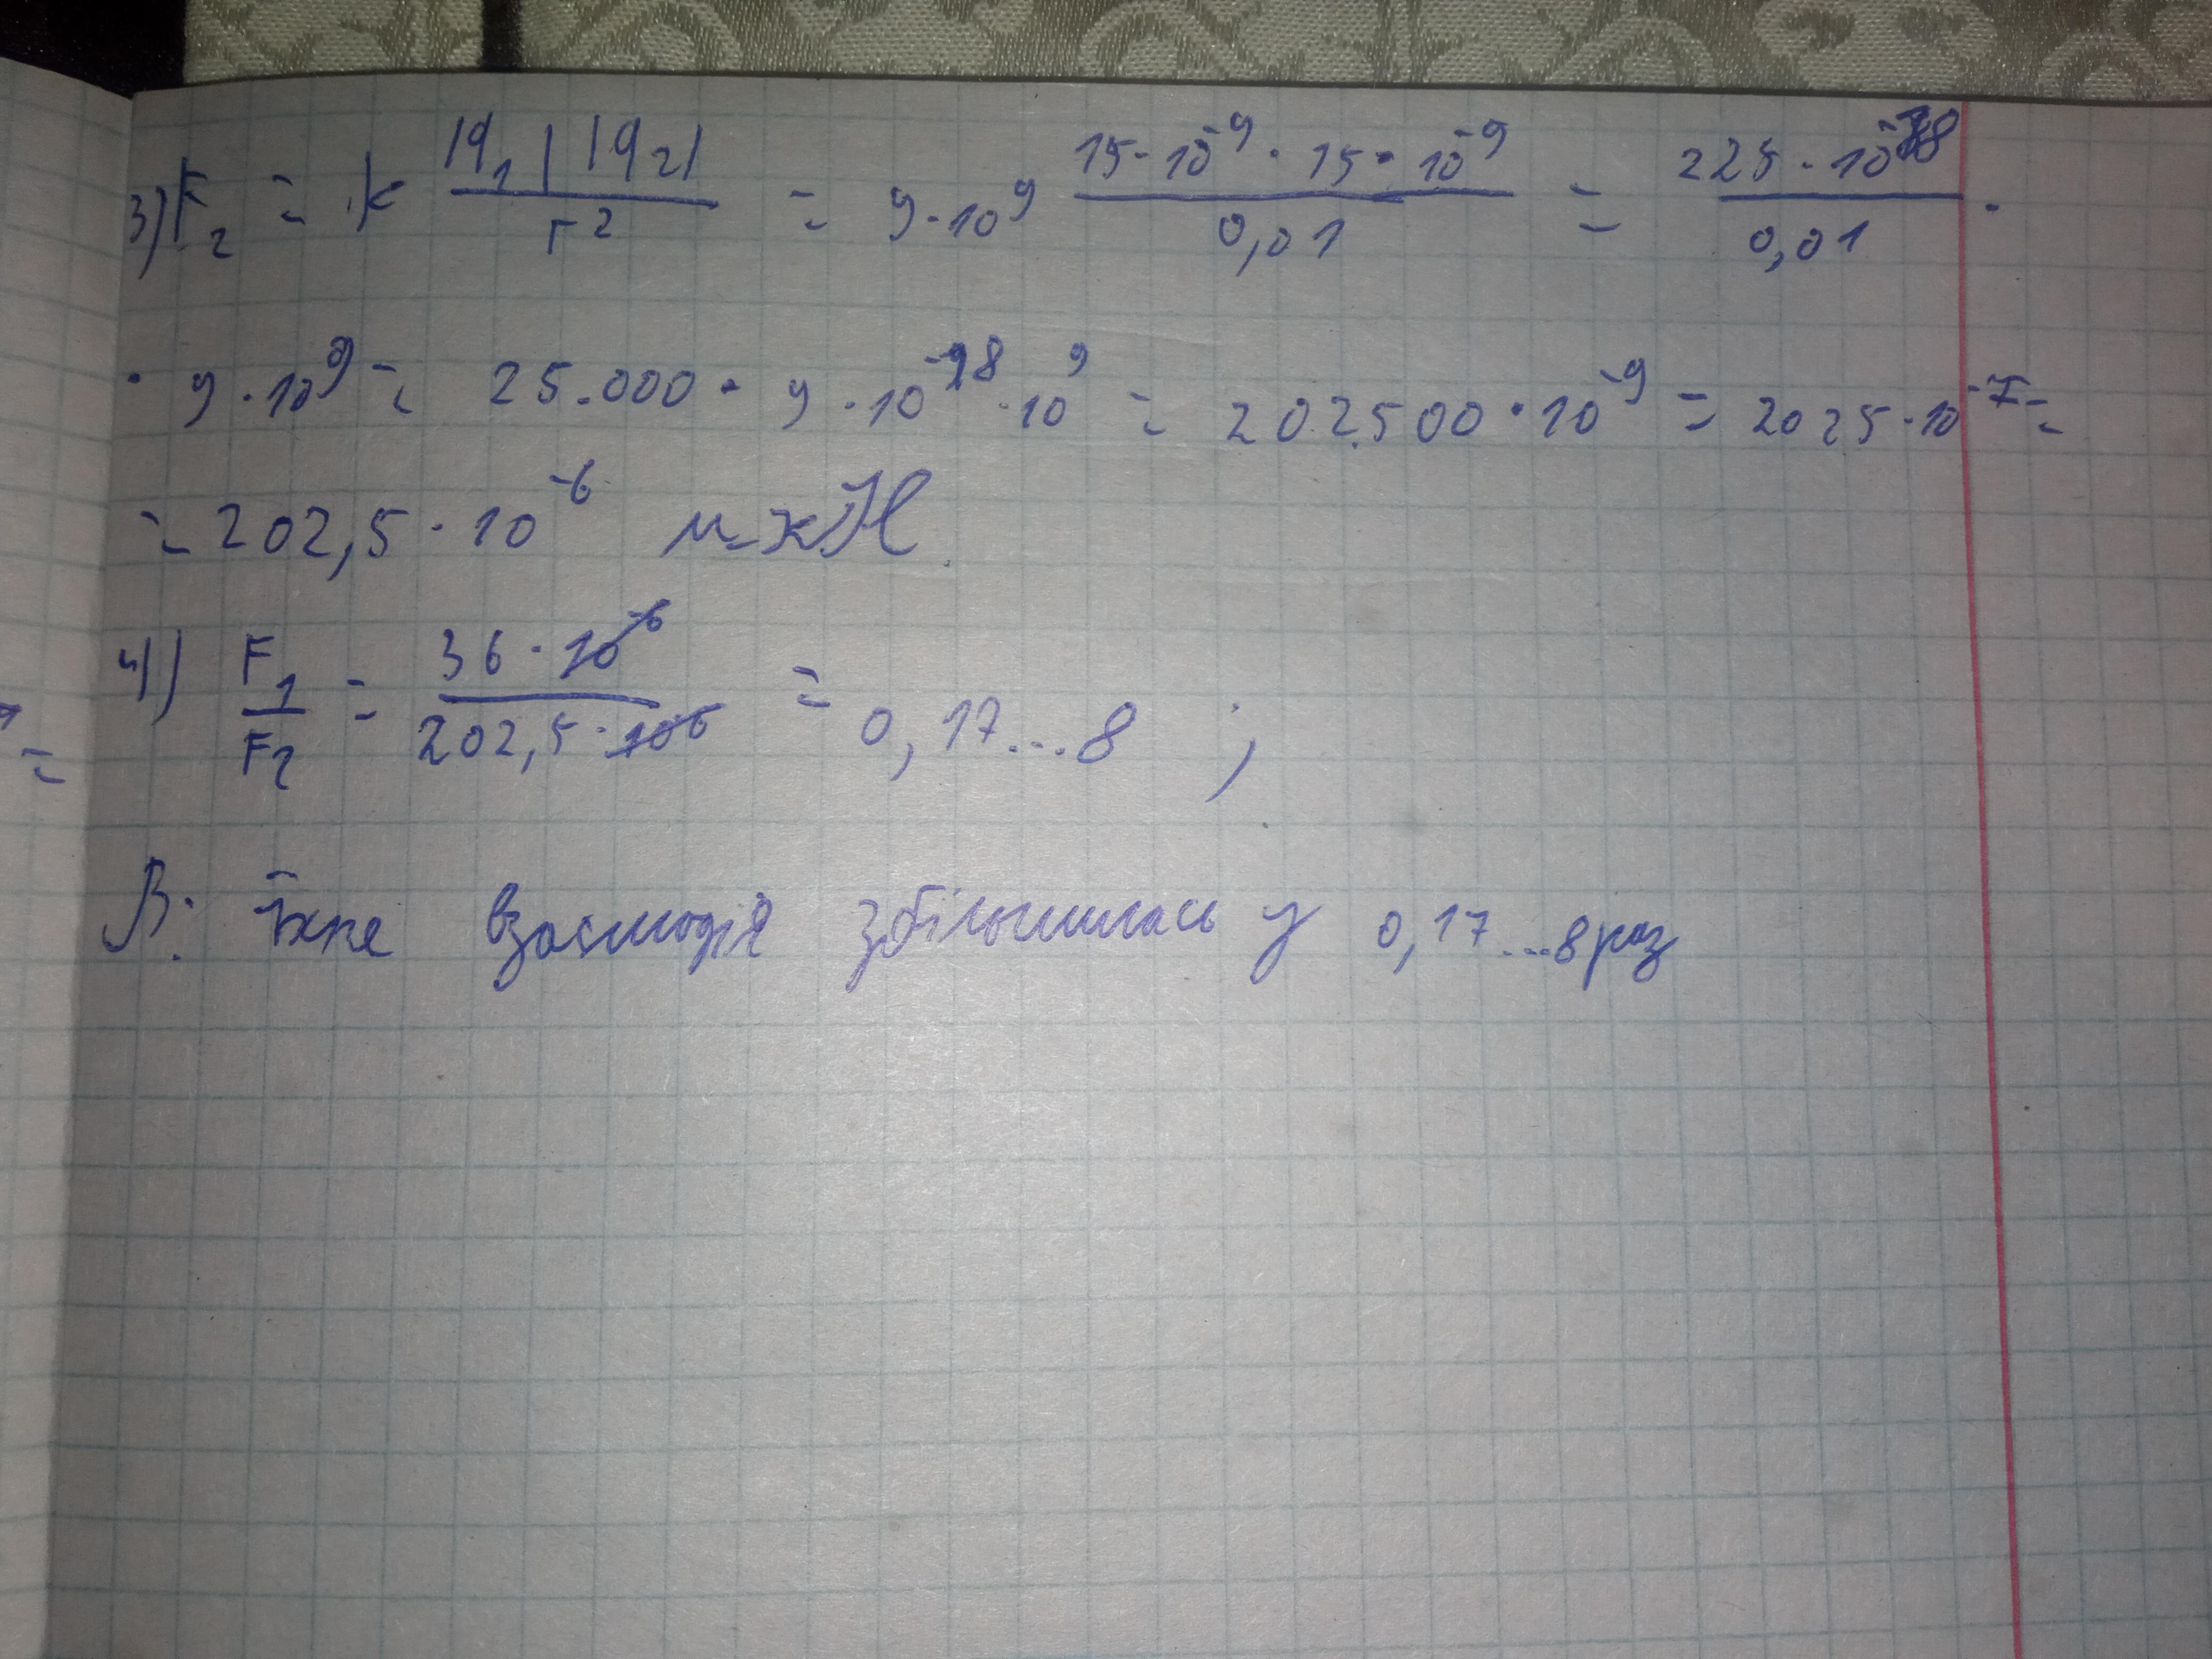 3) F₂ = k |q₁| |q₂| / r² = 9·10⁹ 15·10⁻⁹ · 15·10⁻⁹ / 0,01 = 225·10⁻¹⁸ / 0,01 ·
· 9·10⁹ = 25.000 · 9·10⁻¹⁸·10⁹ = 202500·10⁻⁹ = 2025·10⁻⁷ =
= 202,5·10⁻⁶ мкН
4) F₁ / F₂ = 36·10⁻⁶ / 202,5·10⁻⁶ = 0,17...8 ;
=
В: їхнє взаємодія збільшилась у 0,17...8 раз